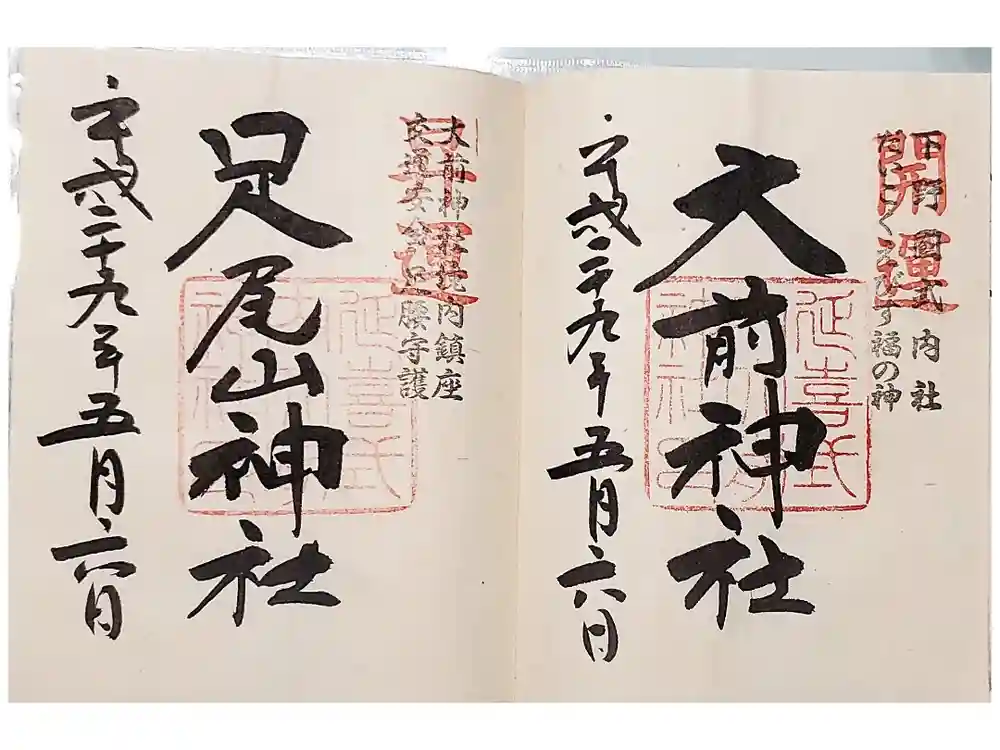 開運
下野國式内社
だいこくえびす福の神
大前神社
延喜式
平成二十九年五月六日
開運
大前神社境内鎮座
交通安全足腰守護
足尾山神社
延喜式
平成二十九年五月六日